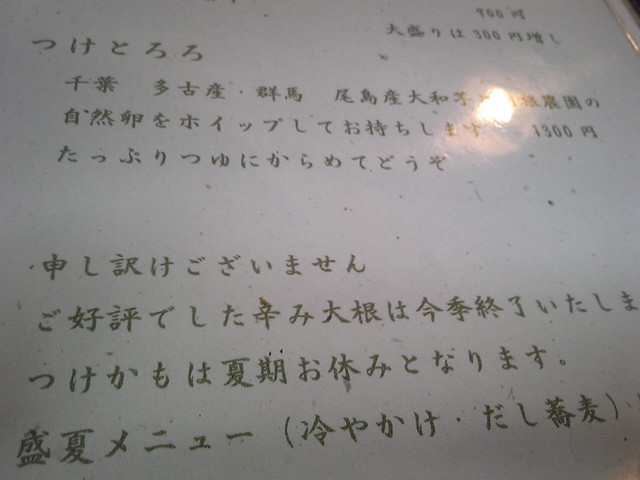 900円
大盛りは300円増し
つけとろろ
千葉 多古産・群馬 尾島産大和芋と 農園の
自然卵をホイップしてお持ちします 1300円
たっぷりつゆにからめてどうぞ
申し訳けございません
ご好評でした辛み大根は今季終了いたしま
つけかもは夏期お休みとなります。
盛夏メニュー(冷やかけ・だし蕎麦)